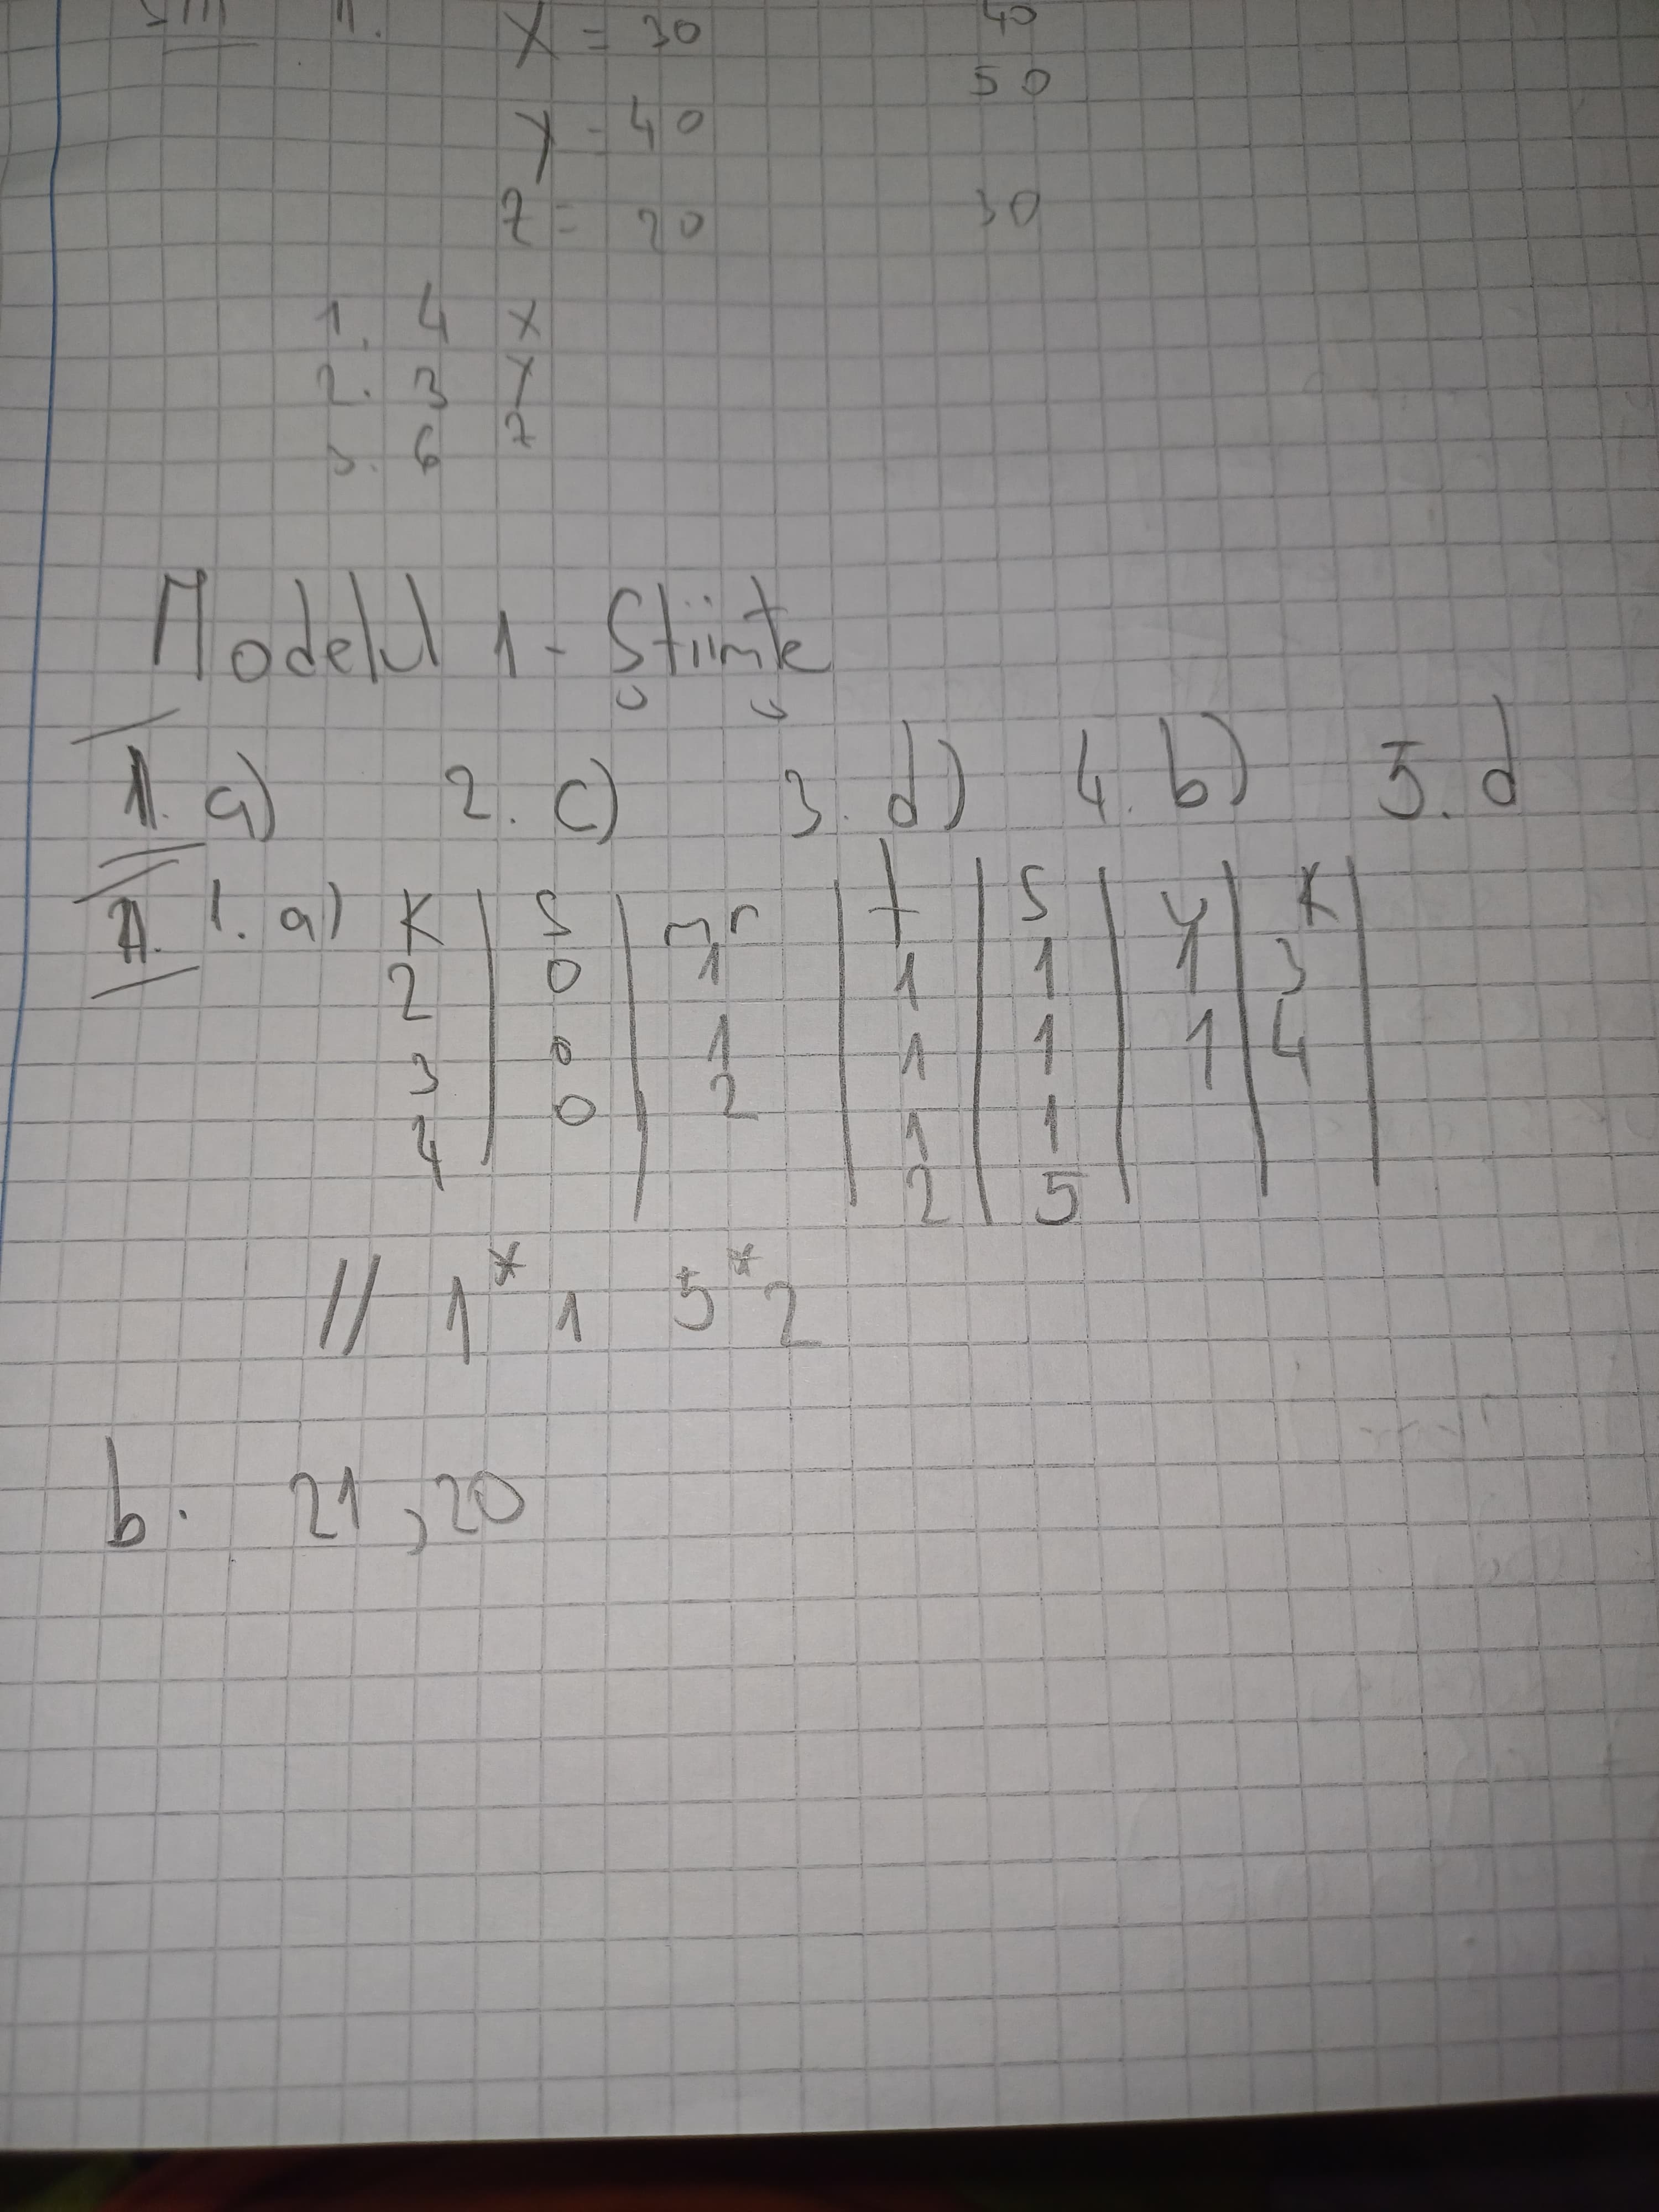 II. X = 30 40
50
y = 40
z = 20 30
1. 4 x
2. 3 y
3. 6 z
Modelul 1 - Științe
I. a) 2. c) 3. d) 4. b) 5. d
II. 1. a) K | S | nr | t | S | y | K |
2 | 0 | 1 | 1 | 1 | 1 | 3
3 | 0 | 1 | 1 | 1 | 1 | 4
4 | 0 | 2 | 1 | 1
2 | 5
// 1*1 5*2
b. 21, 20